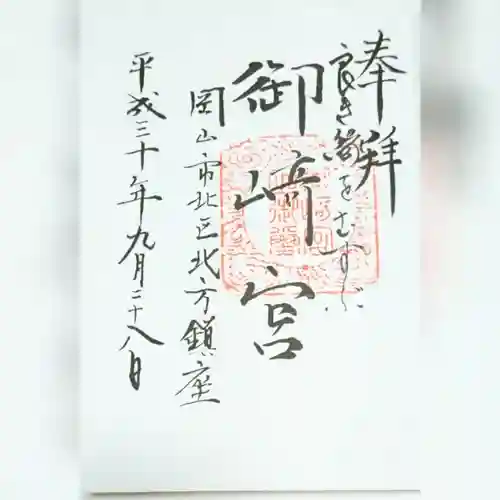 奉拝
良き縁をむすぶ
御崎宮
岡山市北区北方鎮座
平成三十年九月二十八日